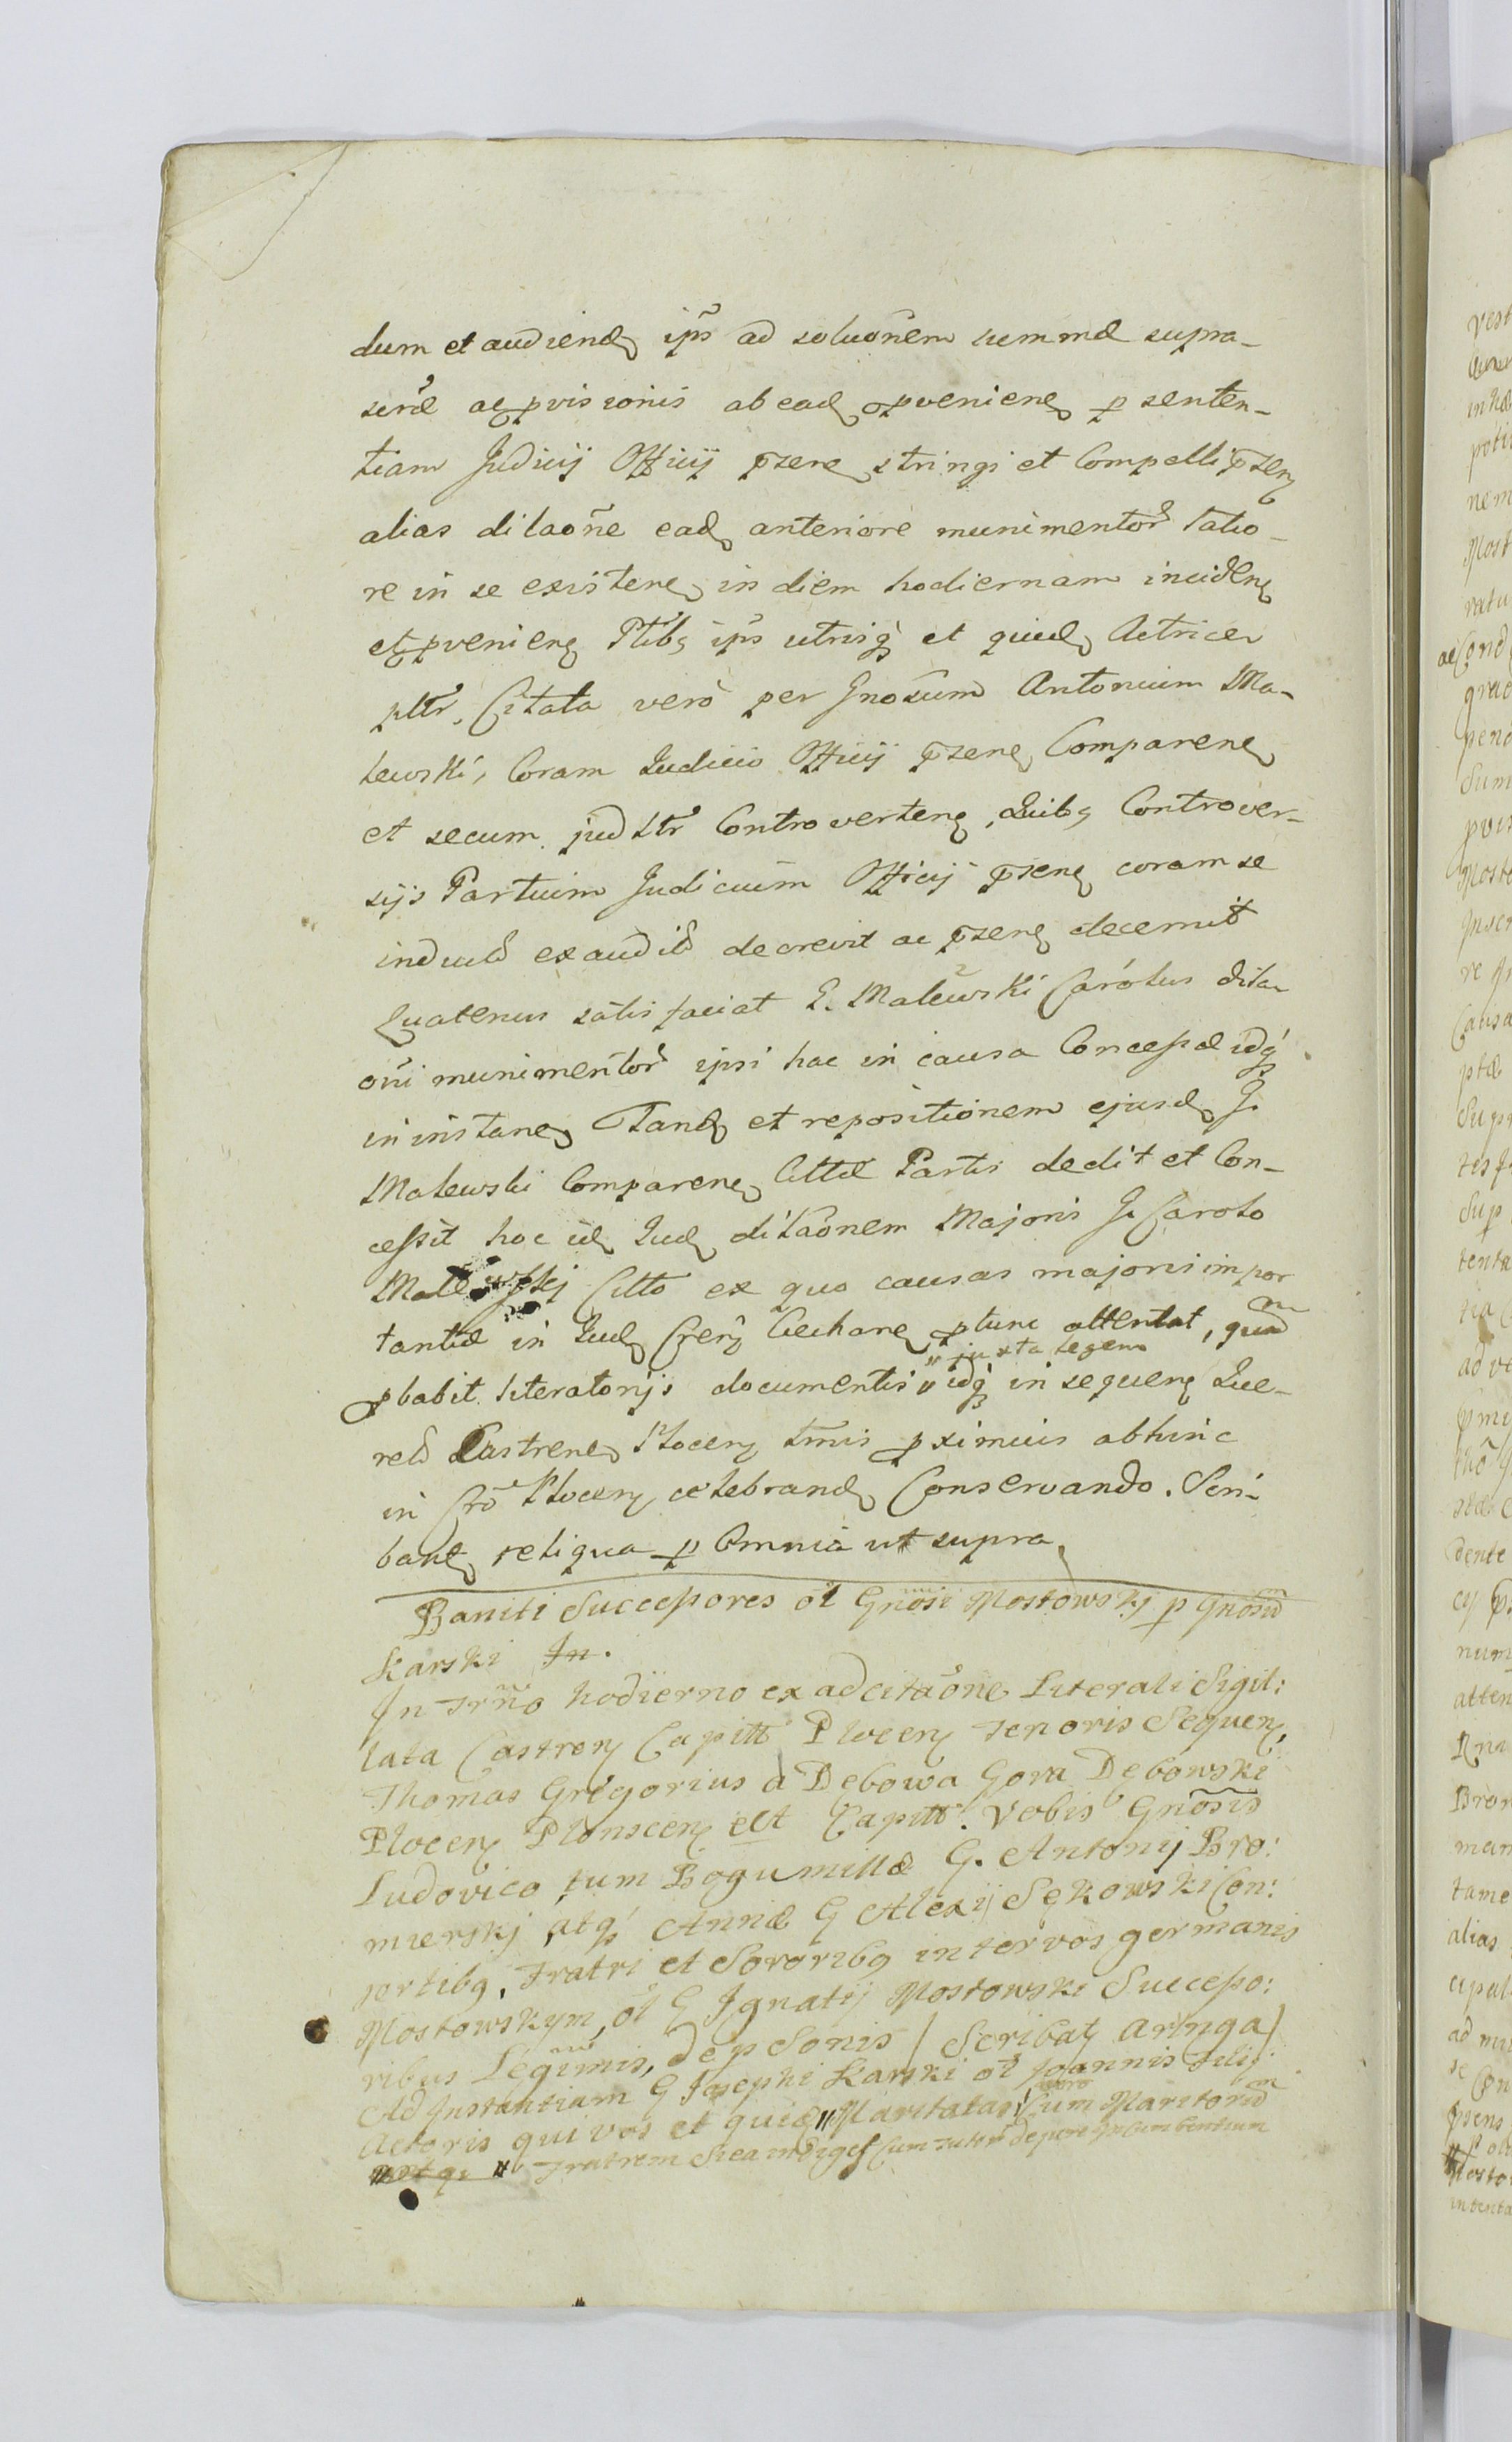 dum et audiend ips ad soluõnem summæ supra-
scræ ac pvisionis ab ead pvenienē p senten-
tiam Judicij Officij psens stringi et Compelli psens
alias dilaõne ead anteriore munimentor latio-
re in se existenē in diem hodiernam incidenē
et pvenienē Ptibs ips utrisq̃ et quid Actrice
pttr. Citata verò per Gnosum Antonium Ma-
lewski, Coram Judicio Officij psens Comparenē
et secum judltr Controvertenē, Quibs Controver-
sijs Partium Judicium Officij psens coram se
inductis exauditis decrevit ac psens decernit
Quatenus satisfaciat G. Malewski Carolus dila-
oni munimentor ipsi hac in causa Concessæ idq̃
in instanē Tand et repositionem ejusd G.
Malewski Comparenē Cittæ Partis dedit et Con-
cessit hoc id Jud dilaõnem Majoris G. Carolo
Malewskj Citto ex quo causas majoris impor
tantiæ in Jud Cren Ciechanē ptunc attentat, quam
pbabit literatorijs documentis " juxta legem idq̃ in sequenē Que-
relis Castrenē Plocen tmis pximius abhinc
in Cro Plocen celebrand Conservando. Scri-
bant reliqua p Omnia ut supra
Baniti Successores ol Gnosi Mostowskj p Gnosum
Karski In.
In Trno hodierno ex adcitaõne Literali Sigil:
lata Castren Capitt Plocen Tenoris Sequen,
Thomas Gregorius a Dębowa Gora Dębowski
Plocen Plonscen ett Capitt. Vobis Gnosis
Ludovico tum Bogumillæ G. Antonij Bro:
mierskj atq̃ Annæ G Alexij Sękowski Con:
sortibq, Fratri et Sororibq inter vos germanis
Mostowskym, ol G Ignatij Mostowski Successo:
ribus Legimis, de psonis / Scribat Arınga /
Ad Instantiam G Josephi Karski ol Joannis Filij
Actoris qui vos et quid " Maritatas vero Cum Maritorum
" Fratrem si ea indiget Cum Tutor de jure Incumbentium